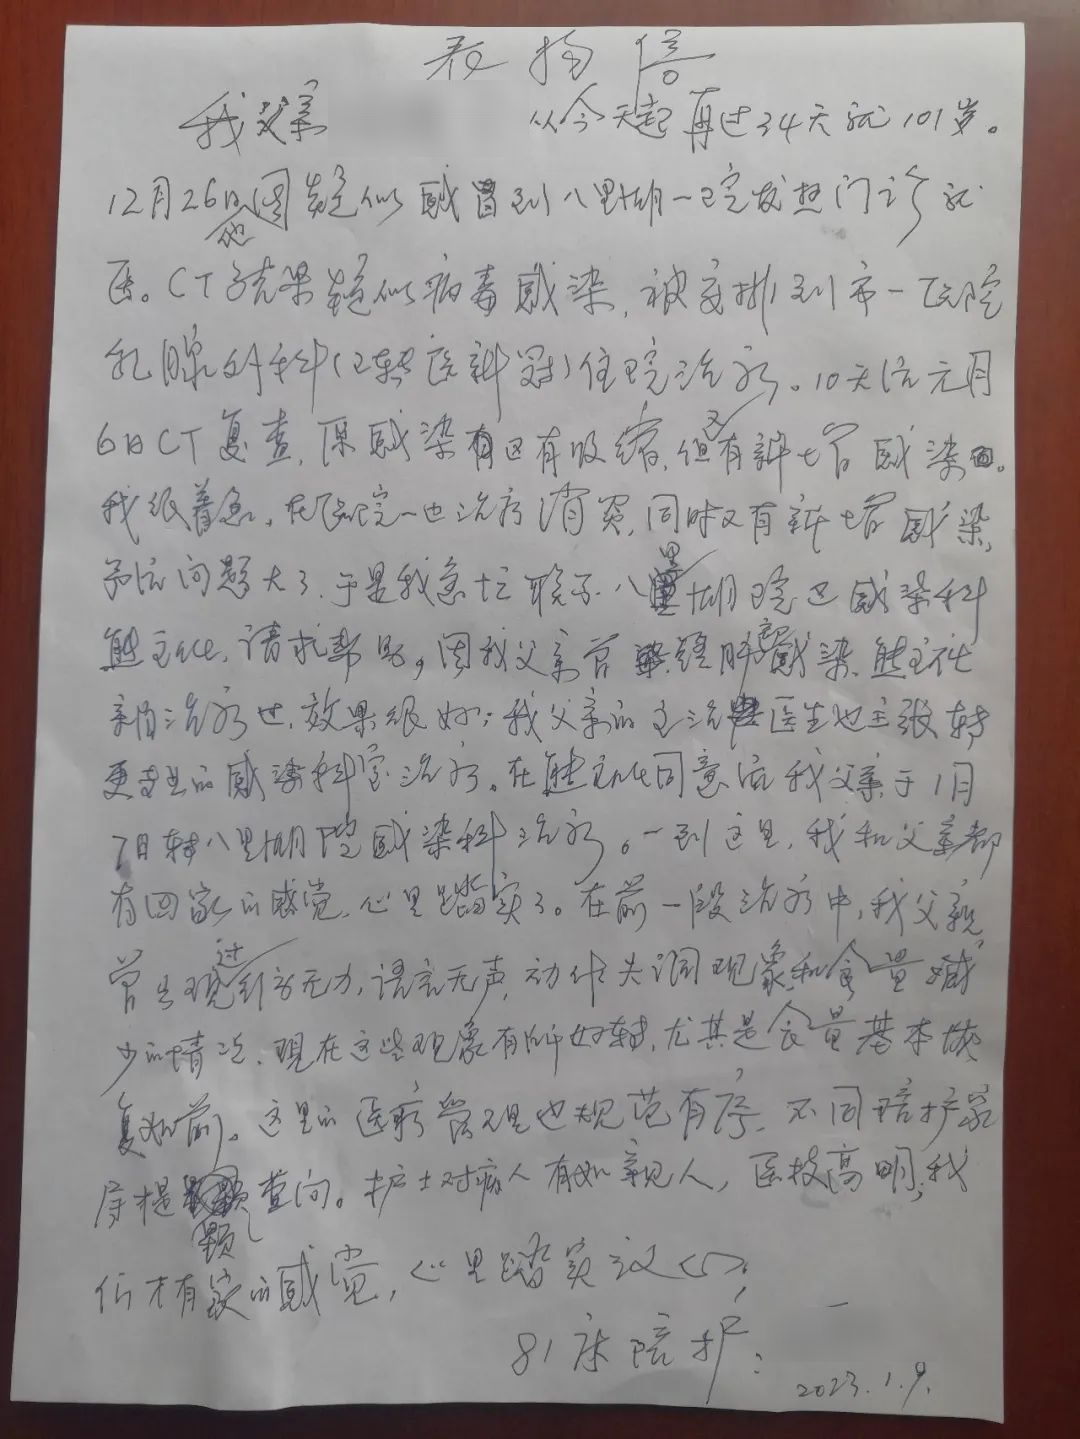 表扬信
我父亲 从今天起再过34天就101岁。
12月26日他因疑似感冒到八里湖一院发热门诊就
医。CT结果疑似病毒感染,被安排到市一医院
乳腺外科(已转医新冠)住院治疗。10天后元月
6日CT复查,原感染有所吸收,但又有新增感染。
我很着急,在医院一边治疗消炎,同时又有新增感染,
予后问题大了,于是我急忙联系八里湖院区感染科
熊主任,请求帮助,因我父亲曾经肺部感染,熊主任
亲自治疗过,效果很好;我父亲的主治医生也主张转
更专业的感染科室治疗。在熊主任同意后我父亲于1月
7日转八里湖院感染科治疗。一到这里,我和父亲都
有回家的感觉,心里踏实了。在前一段治疗中,我父亲
曾出现过行动无力,语言无声,动作失调现象和食量减
少的情况,现在这些现象有所好转,尤其是食量基本恢
复如前。这里的医疗管理也规范有序,不同陪护家
属提问题查问。护士对病人有如亲人,医技高明,我
们才有家的感觉,心里踏实
81床陪护:
2023.1.9.